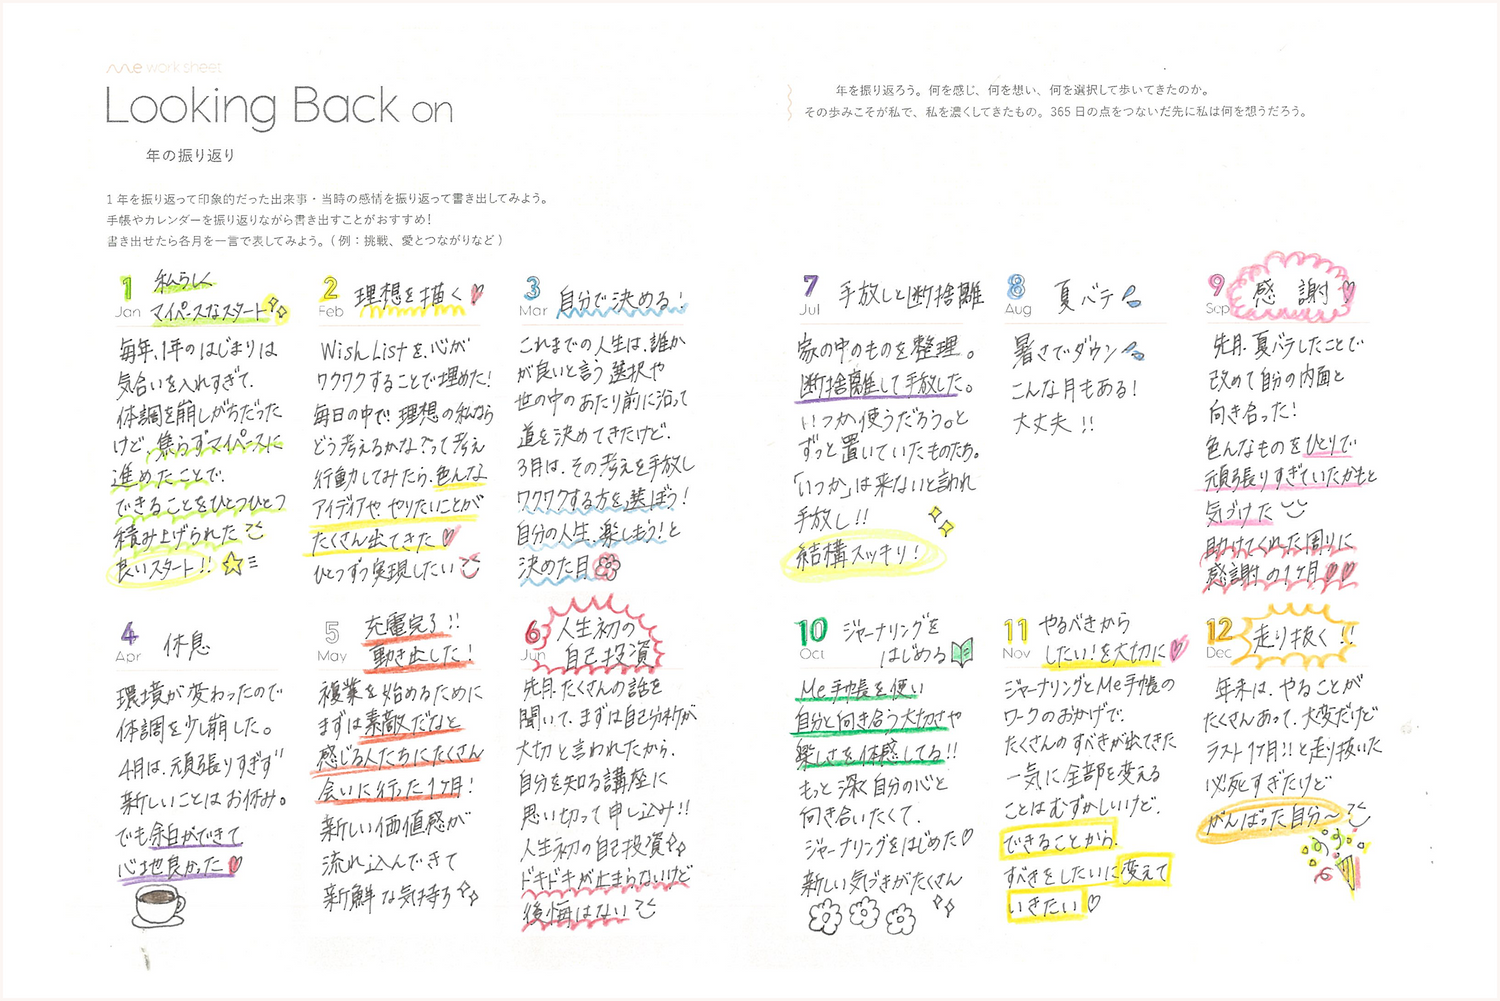 me work sheet
Looking Back on
年の振り返り
1年を振り返って印象的だった出来事・当時の感情を振り返って書き出してみよう。
手帳やカレンダーを振り返りながら書き出すことがおすすめ！
書き出せたら各月を一言で表してみよう。(例：挑戦、愛とつながりなど)
年を振り返ろう。何を感じ、何を想い、何を選択して歩いてきたのか。
その歩みこそが私で、私を濃くしてきたもの。365日の点をつないだ先に私は何を想うだろう。
1 Jan
私らしく
マイペースなスタート
毎年、1年のはじまりは
気合いを入れすぎて、
体調を崩しがちだった
けど、焦らずマイペースに
進めたことで、
できることをひとつひとつ
積み上げられた
良いスタート!!
2 Feb
理想を描く
Wish Listを、心が
ワクワクすることで埋めた!
毎日の中で、理想の私なら
どう考えるかな？って考え
行動してみたら、色んな
アイディアや やりたいことが
たくさん出てきた
ひとつずつ実現したい
3 Mar
自分で決める!
これまでの人生は、誰か
が良いと言う選択や
世の中のあたり前に沿って
道を決めてきたけど、
3月は、その考えを手放し
ワクワクする方を選ぼう!
自分の人生、楽しもう!と
決めた月
4 Apr
休息
環境が変わったので
体調を少し崩した。
4月は、頑張りすぎず
新しいことはお休み。
でも余白ができて
心地良かった
5 May
充電完了!!
動き出した!
複業を始めるために
まずは素敵だなと
感じる人たちにたくさん
会いに行った1ヶ月!
新しい価値感が
流れ込んできて
新鮮な気持ち
6 Jun
人生初の
自己投資
先月、たくさんの話を
聞いて、まずは自己分析が
大切と言われたから、
自分を知る講座に
思い切って申し込み!!
人生初の自己投資
ドキドキが止まらないけど
後悔はない
7 Jul
手放しと断捨離
家の中のものを整理。
断捨離して手放した。
いつか使うだろう。と
ずっと置いていたものたち。
「いつか」は来ないと言われ
手放し!!
結構スッキリ!
8 Aug
夏バテ
暑さでダウン
こんな月もある!
大丈夫!!
9 Sep
感謝
先月、夏バテしたことで
改めて自分の内面と
向き合った!
色んなものをひとりで
頑張りすぎていたかもと
気づけた
助けてくれた周りに
感謝の1ヶ月
10 Oct
ジャーナリングを
はじめる
Me手帳を使い
自分と向き合う大切さや
楽しさを体感してる!!
もっと深く自分の心と
向き合いたくて、
ジャーナリングをはじめた
新しい気づきがたくさん
11 Nov
やるべきから
したい!を大切に
ジャーナリングとMe手帳の
ワークのおかげで、
たくさんのすべきが出てきた
一気に全部を変える
ことはむずかしいけど、
できることから、
すべきをしたいに変えて
いきたい
12 Dec
走り抜く!!
年末は、やることが
たくさんあって、大変だけど
ラスト1ヶ月!!と走り抜いた
必死すぎたけど
がんばった自分〜